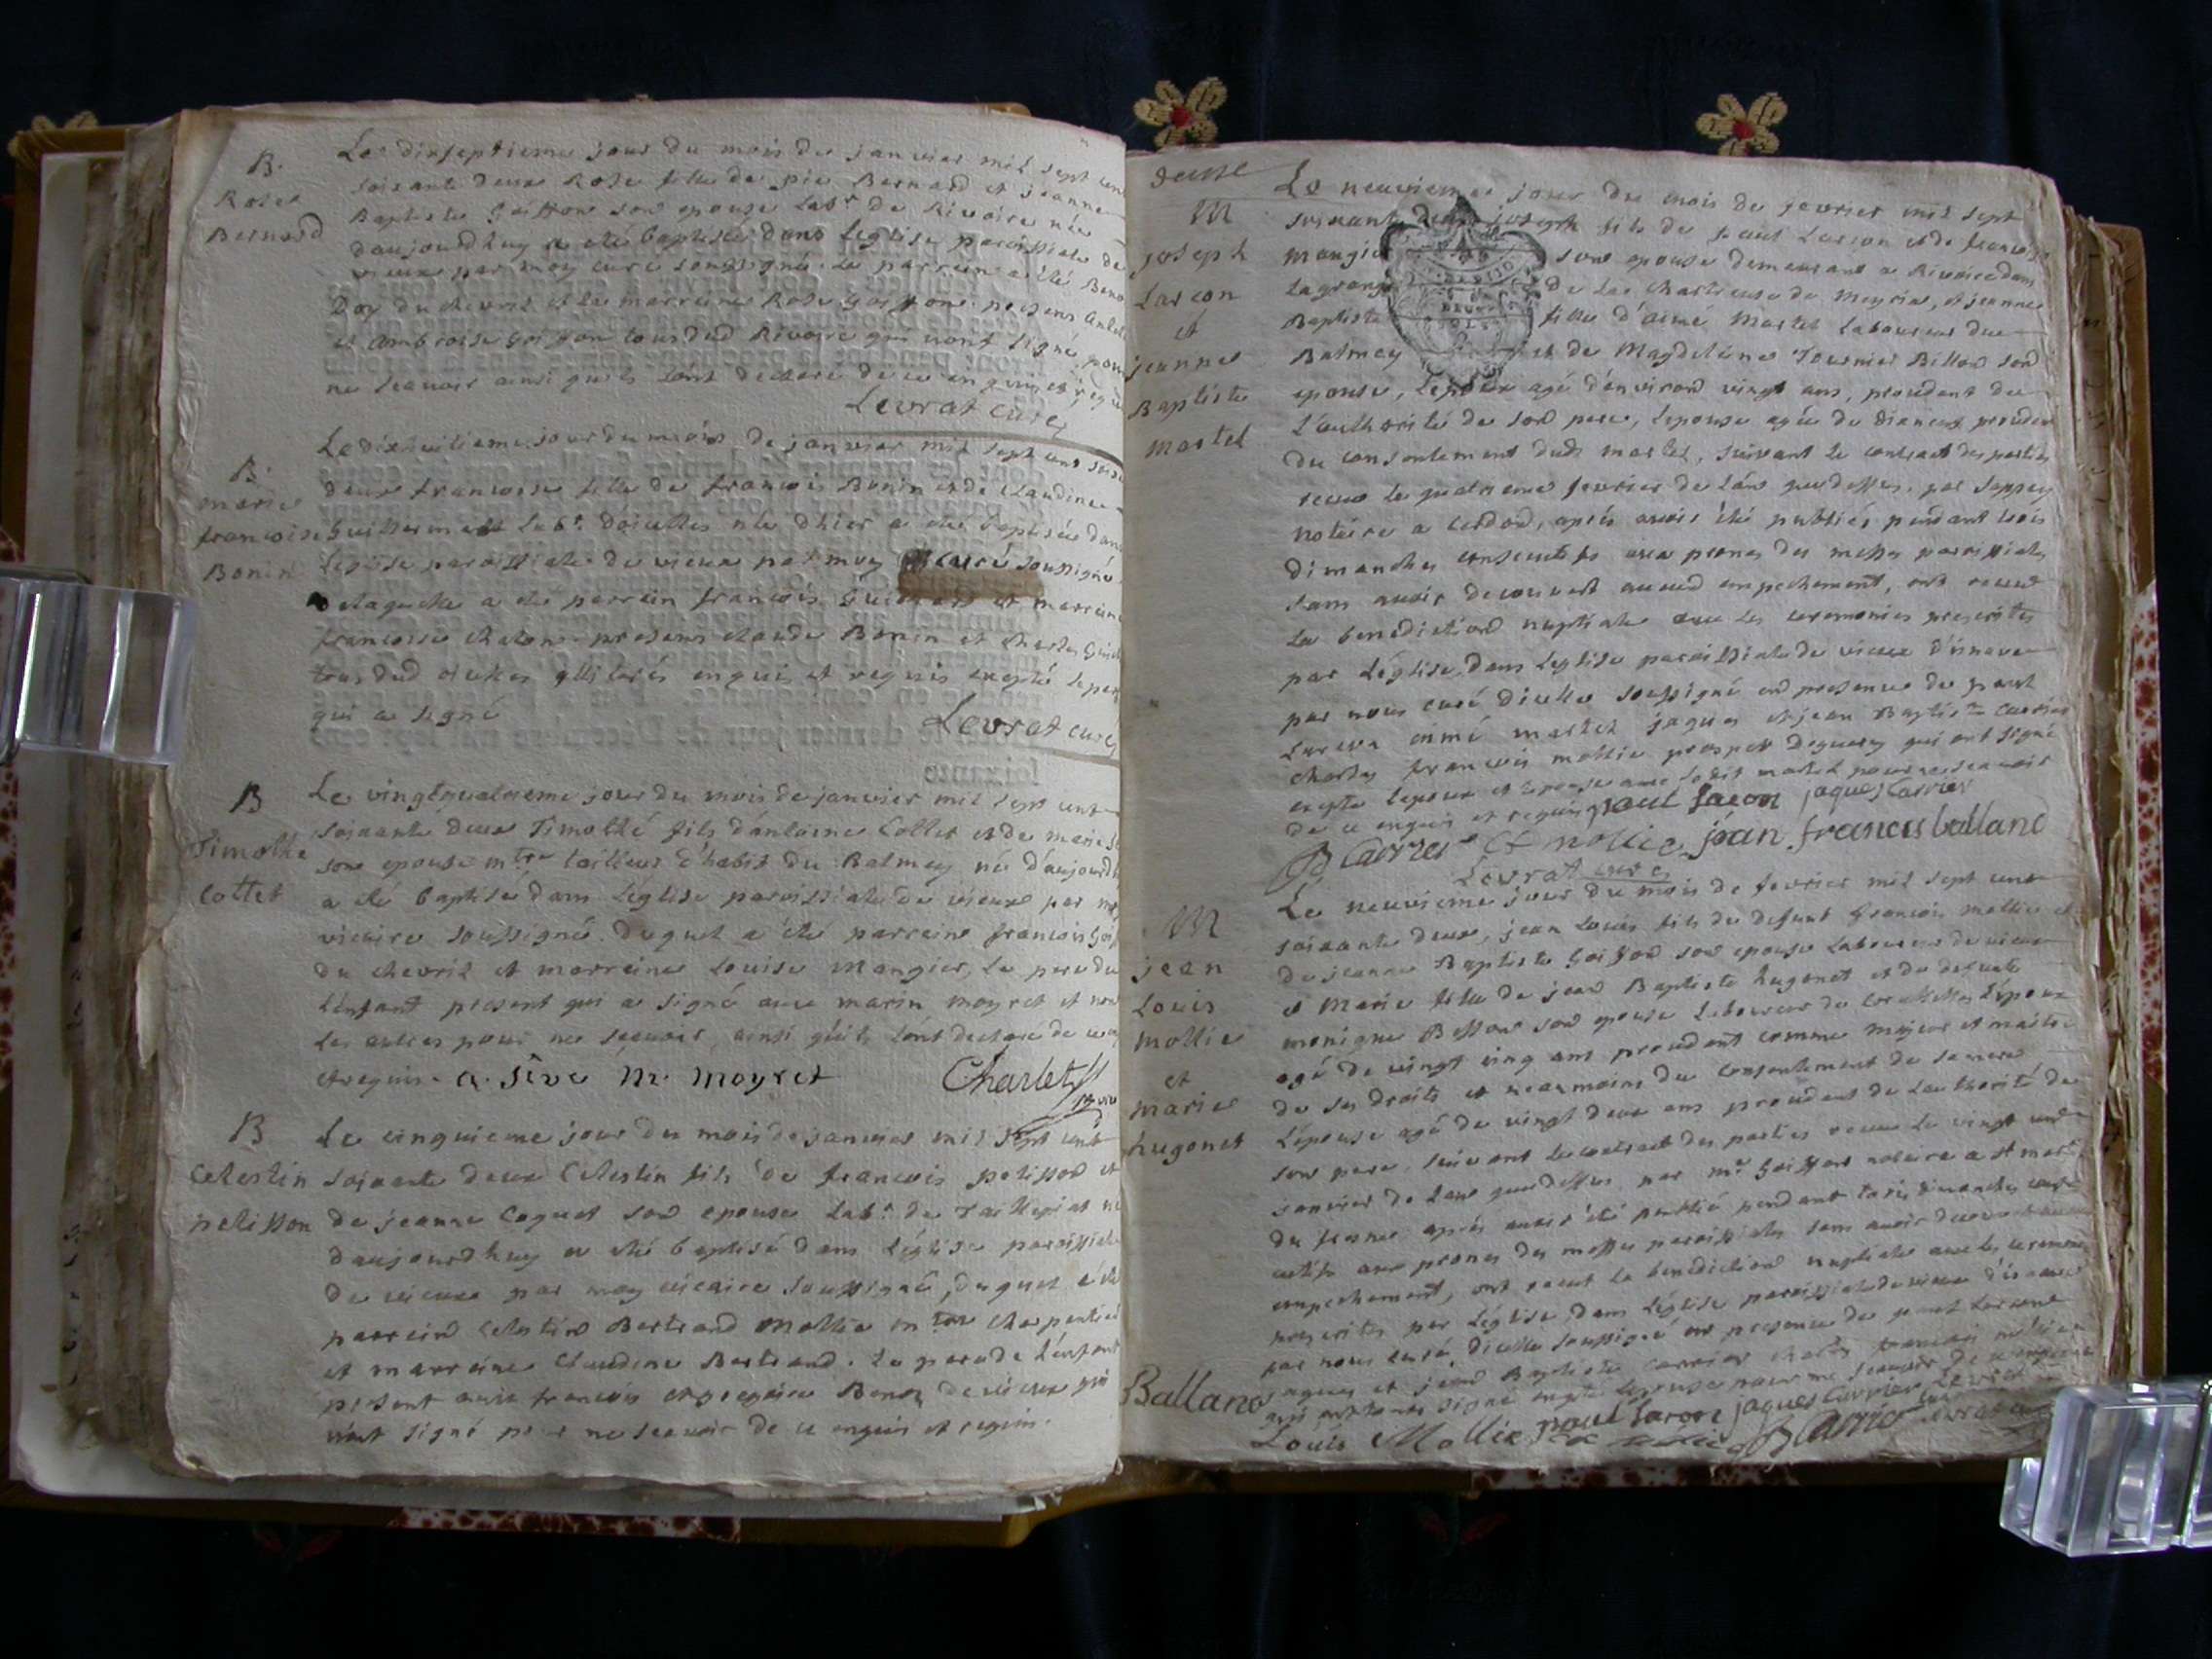 B.
Roses
Bernard
Le dixseptieme jour du mois de janvier mil sept cent
soixante deux Rose fille de pie Bernard et jeanne
Baptiste Goiffon son epouse Labr de Rivoire née
daujourdhuy a été baptisée dans Leglise paroissiale de
vieux par moy curé soussigné. Le parrein a été Beno
Doy du chevril et la marreine Rose Goiffon. presens
et Ambroise Goiffon tous dud Rivoire qui nont signé pour
ne scavoir ainsi quils lont declaré de ce enquis et requis
Levrat curé
B.
marie
francoise
Bonin
Le dixhuitieme jour du mois de janvier mil sept cent soix
deux francoise fille de francois Bonin et de Claudine
Guillermet Labr. doisellies née dhier a été baptisée dans
Leglise paroissiale de vieux par moy curé soussigné
delaquelle a été parrein francois et marreine
francoise chalon. presens claude Bonin et charles
tous dud illiterés enquis et requis excepté le
qui a signé
Levrat curé
B
Timothé
Collet
Le vingtquatrieme jour du mois de janvier mil sept cent
soixante deux Timothé fils dantoine Collet et de marie
son epouse mtre tailleur d'habit du Balmey né daujourdh
a été baptisé dans Léglise paroissiale de vieux par moy
vicaire soussigné. Duquel a été parrein francois
du chevril et marreine Louise Mangier, Le pere de
Lenfant present qui a signé avec marin moyret et non
Les autres pour ne scavoir, ainsi quils lont declaré de ce
et requis. a. Sève M. Moyret Charlet
B
Celestin
pelisson
Le cinquieme jour du mois de janvier mil sept cent
soixante deux Celestin fils de francois pelisson et
de jeanne Coquet son epouse Labr. de Taillepiat né
daujourdhuy a été baptisé dans Léglise paroissiale
de vieux par moy vicaire soussigné, duquel a été
parrein Celestin Bertrand Mollie mtre charpentier
et marreine Claudine Bertrand. Le pere de lenfant
present avec francois et de vieux qui
n'ont signé pour ne scavoir de ce enquis et requis.
M
joseph
Larcon
et
jeanne
Baptiste
martel
Le neuvieme jour du mois de fevrier mil sept
soixante deux joseph fils de paul Larcon et de francoise
mangie son epouse demeurant a Rivoire dans
Lagrange de La Chartreuse de Meyria, et jeanne
Baptiste fille d'aimé Martel Laboureur du
Balmey et de Magdeléne Tournier Billon son
epouse, Lepoux agé d'environ vingt ans, procedant de
L'authorité de son pere, Lepouse agée de dixneuf procedan
du consentement dudt martel, suivant le contract des parties
receu le quatrieme fevrier de lan que dessus, par
notaire a Cerdon, aprés avoir été publiés pendant trois
dimanches consecutifs aux prones des messes paroissiales
sans avoir decouvert aucun empechement, ont receu
La benediction nuptiale avec les ceremonies prescrites
par Léglise, dans Leglise paroissiale de vieux d'isnave
par nous curé dicelle soussigné en presence de paul
Larcon aimé martel jaques et jean Baptiste Carrier
charles francois mollie prosper qui ont signé
excepté Lepoux et Lepouse avec ledit martel pour ne scavoir
de ce enquis et requis paul Lacon jaques Carrier
JB Carrier C F mollie jean francois balland
Levrat curé
M
jean
Louis
mollie
et
marie
hugonet
Balland
Le neuvieme jour du mois de fevrier mil sept cent
soixante deux, jean Louis fils de defunt francois mollie et
de jeanne Baptiste Goiffon son epouse Laboureur de vieux
et Marie fille de jean Baptiste hugonet et de defunte
monique Besson son epouse Laboureur de Lepoux
agé de vingt cinq ans procedant comme majeur et maitre
de ses droits et neanmoins du consentement de sa mere
Lépouse agé de vingt deux ans procedant de Lauthorité de
son pere, suivant le contract des parties receu Le vingt un
janvier de Lan que dessus par mr. Goiffon notaire a st martin
du fresne aprés avoir été publié pendant trois dimanches conse
cutifs aux prones des messes paroissiales sans avoir decouvert aucun
empechement, ont receut la benediction nuptiale avec les ceremonies
prescrites par Léglise, dans Léglise paroissiale de vieux d'isnave
par nous curé dicelle soussigné en presence de paul Larcon
jaques et jean Baptiste Carrier charles francois mollie
qui ont tous signé excepté Lepouse pour ne scavoir de ce enquise
Louis Mollie paul Laron jaques Carrier JB Carrier Levrat curé